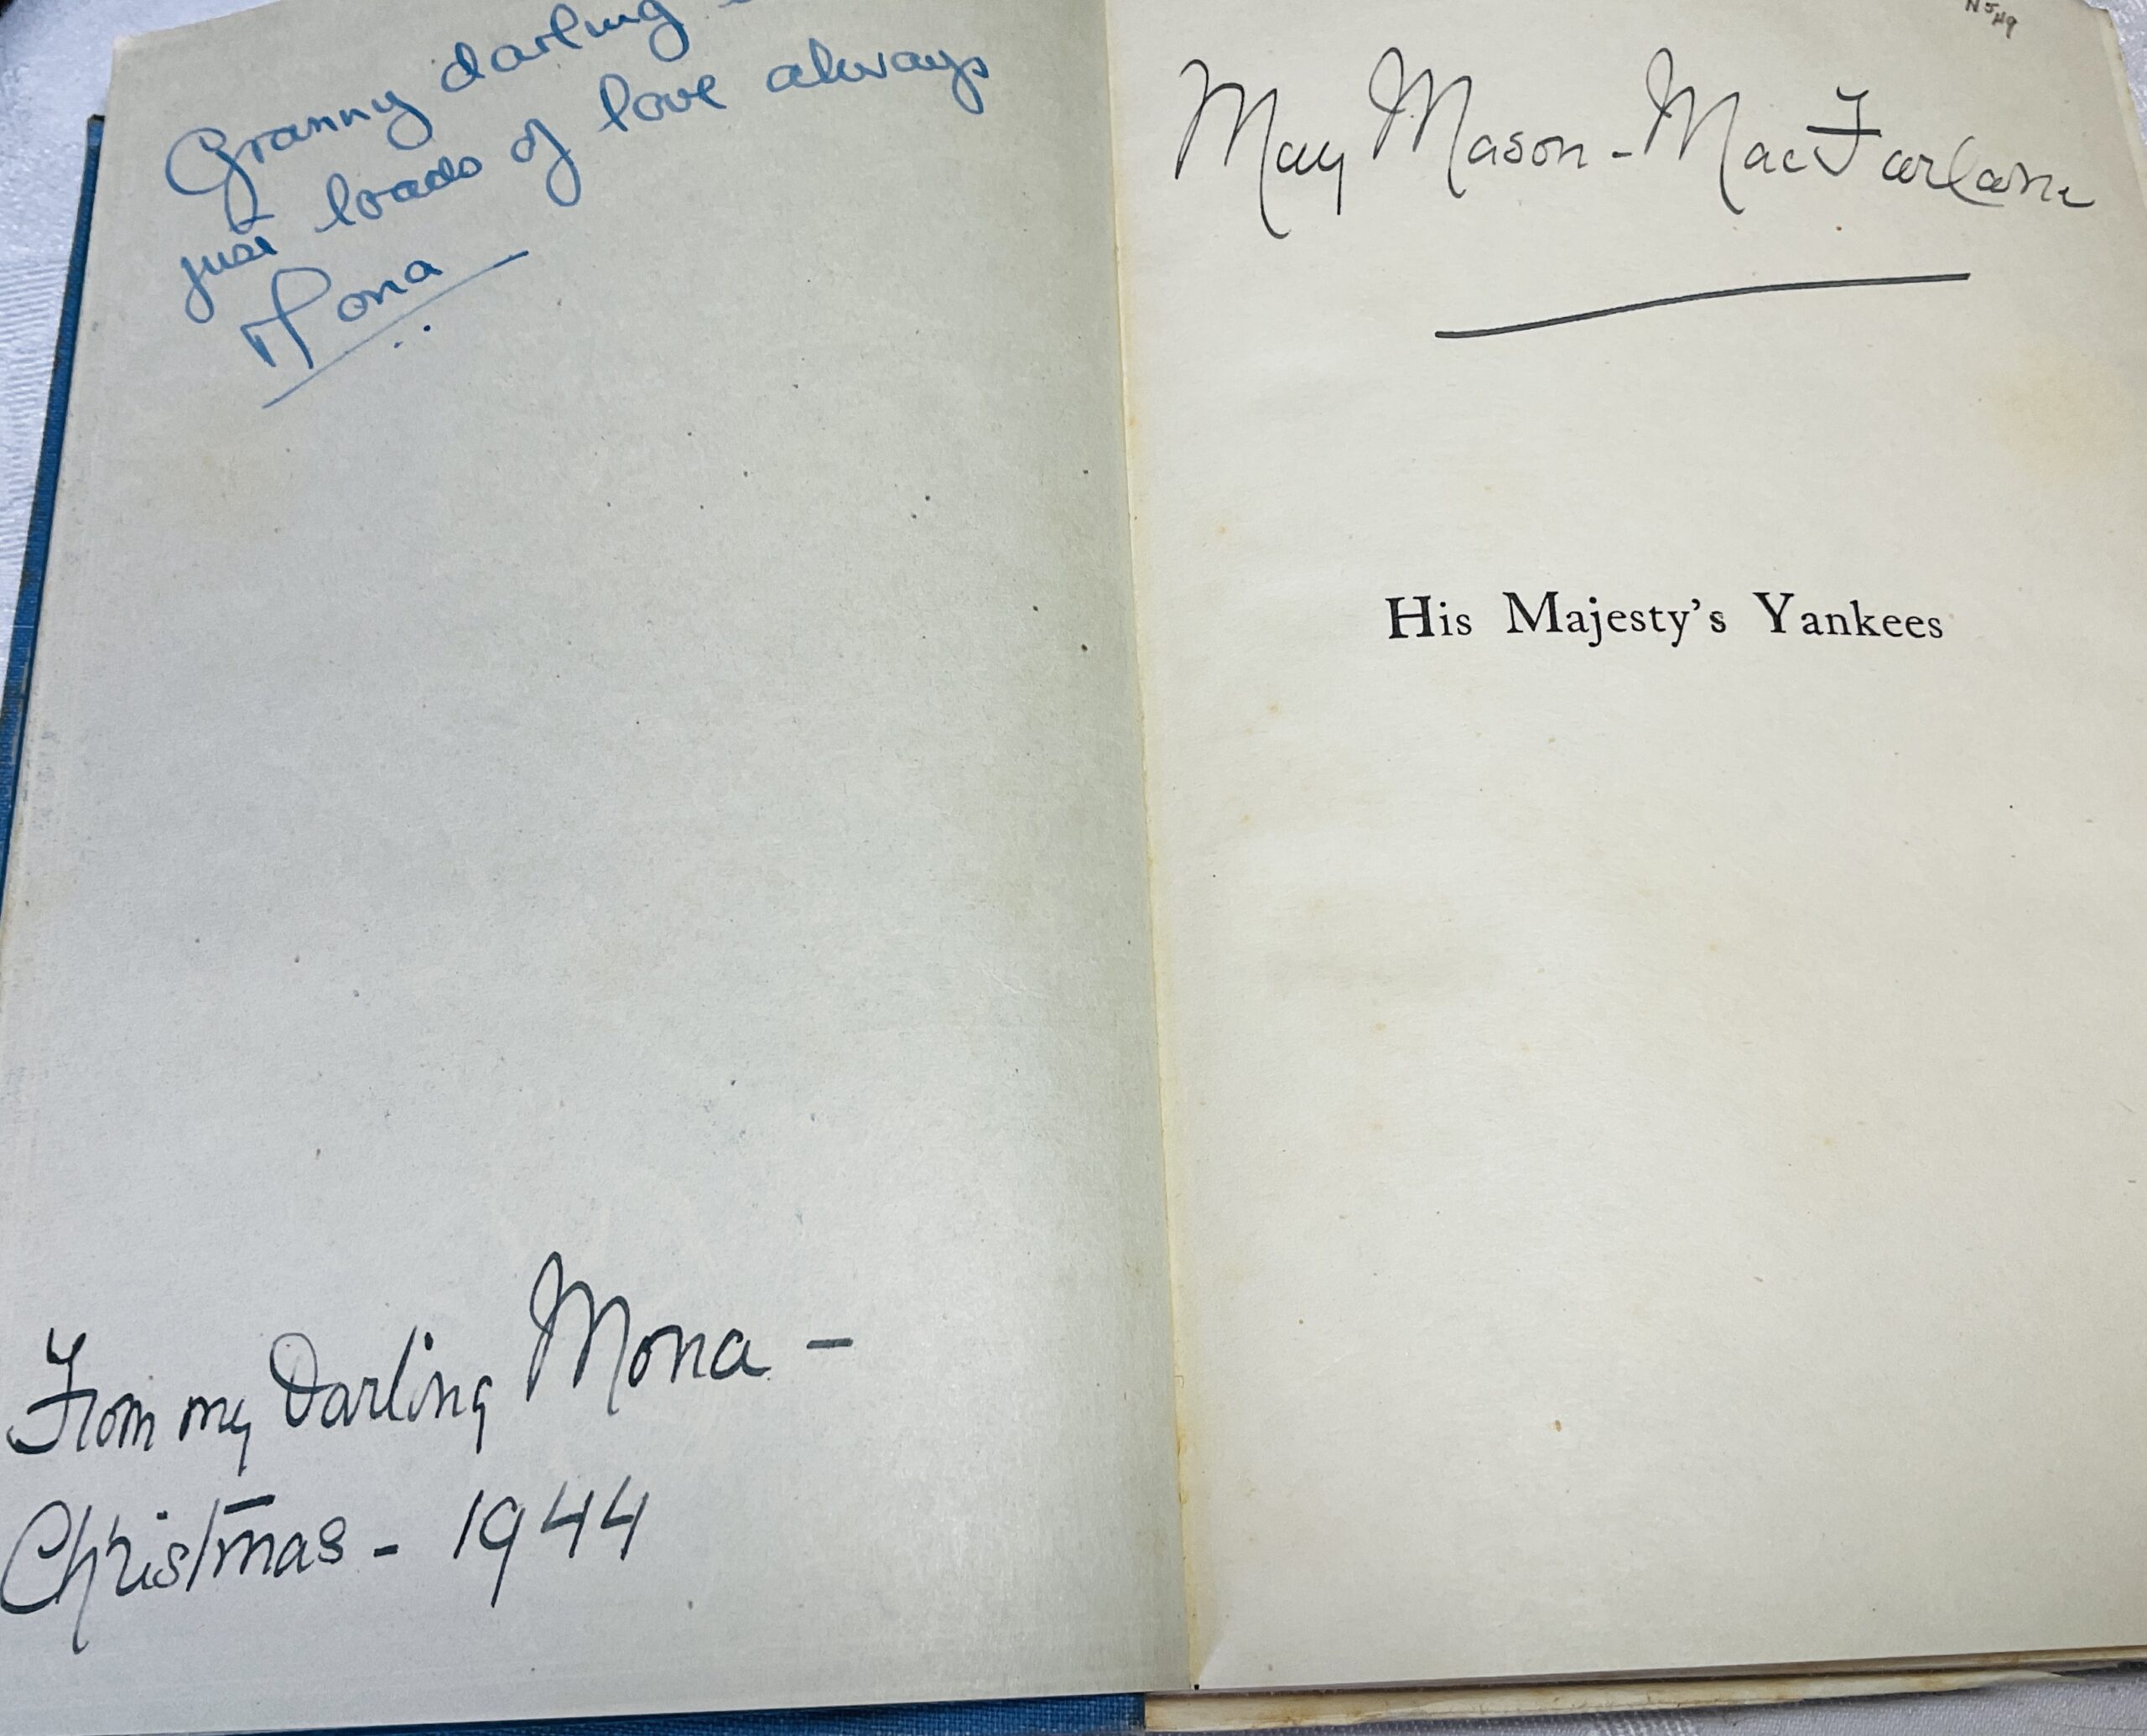 Granny darling -
just loads of love always
Mona
From my Darling Mona -
Christmas - 1944
May Mason - MacFarlane
His Majesty's Yankees